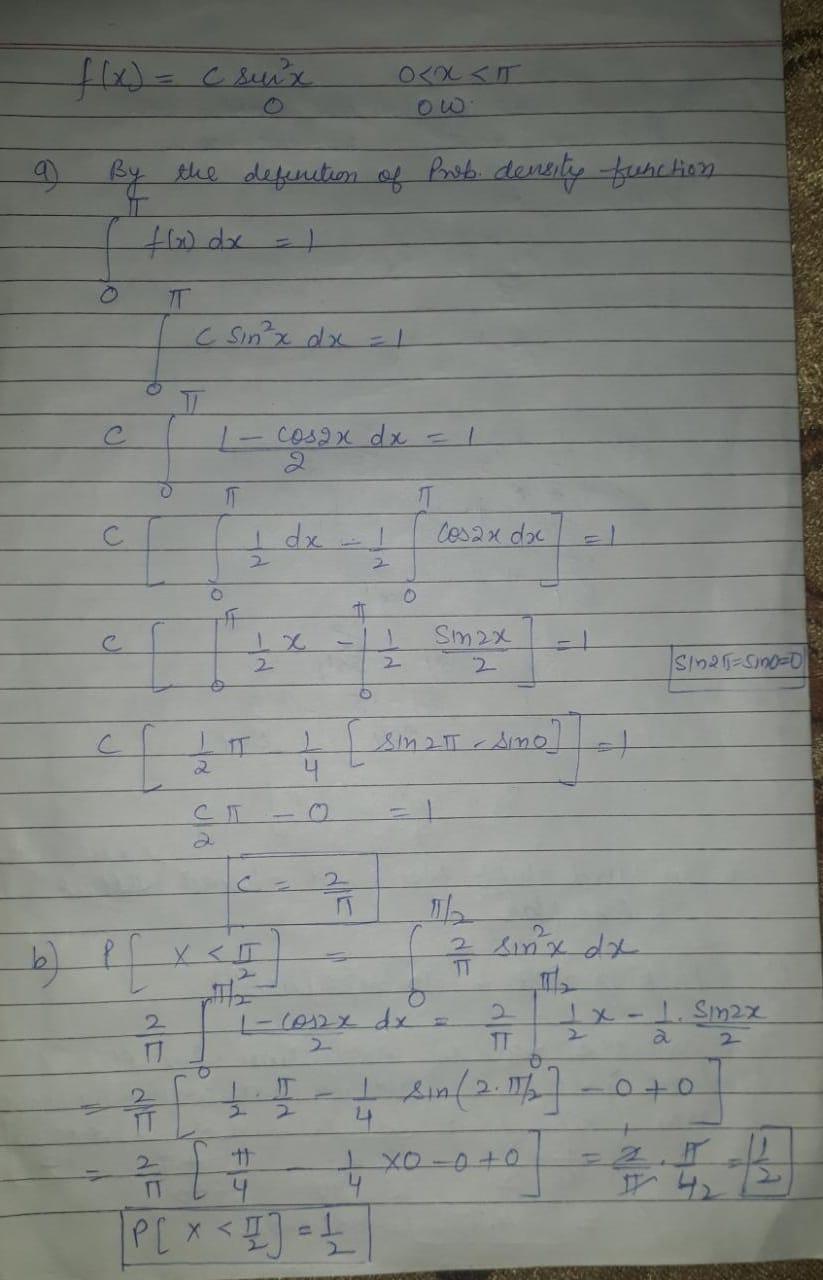 f(x) = c sin²x    0<x<π
0    0W.
a) By the definition of Prob. density function
∫₀^π f(x) dx = 1
∫₀^π c sin²x dx = 1
c ∫₀^π (1 - cos2x)/2 dx = 1
c [ ∫₀^π 1/2 dx - 1/2 ∫₀^π cos2x dx ] = 1
c [ |₀^π 1/2 x - |₀^π 1/2 sin2x/2 ] = 1    sin2π=sin0=0
c [ 1/2 π - 1/4 [ sin2π - sin0 ] ] = 1
c/2 π - 0 = 1
c = 2/π
b) P[ X < π/2 ] = ∫₀^π/2 2/π sin²x dx
2/π ∫₀^π/2 (1 - cos2x)/2 dx = 2/π |₀^π/2 1/2 x - 1/2 . sin2x/2
= 2/π [ 1/2 . π/2 - 1/4 sin(2.π/2] - 0 + 0 ]
= 2/π [ π/4 - 1/4 x0 - 0 + 0 ] = 2/π . π/4 2 = 1/2
P[ X < π/2 ] = 1/2